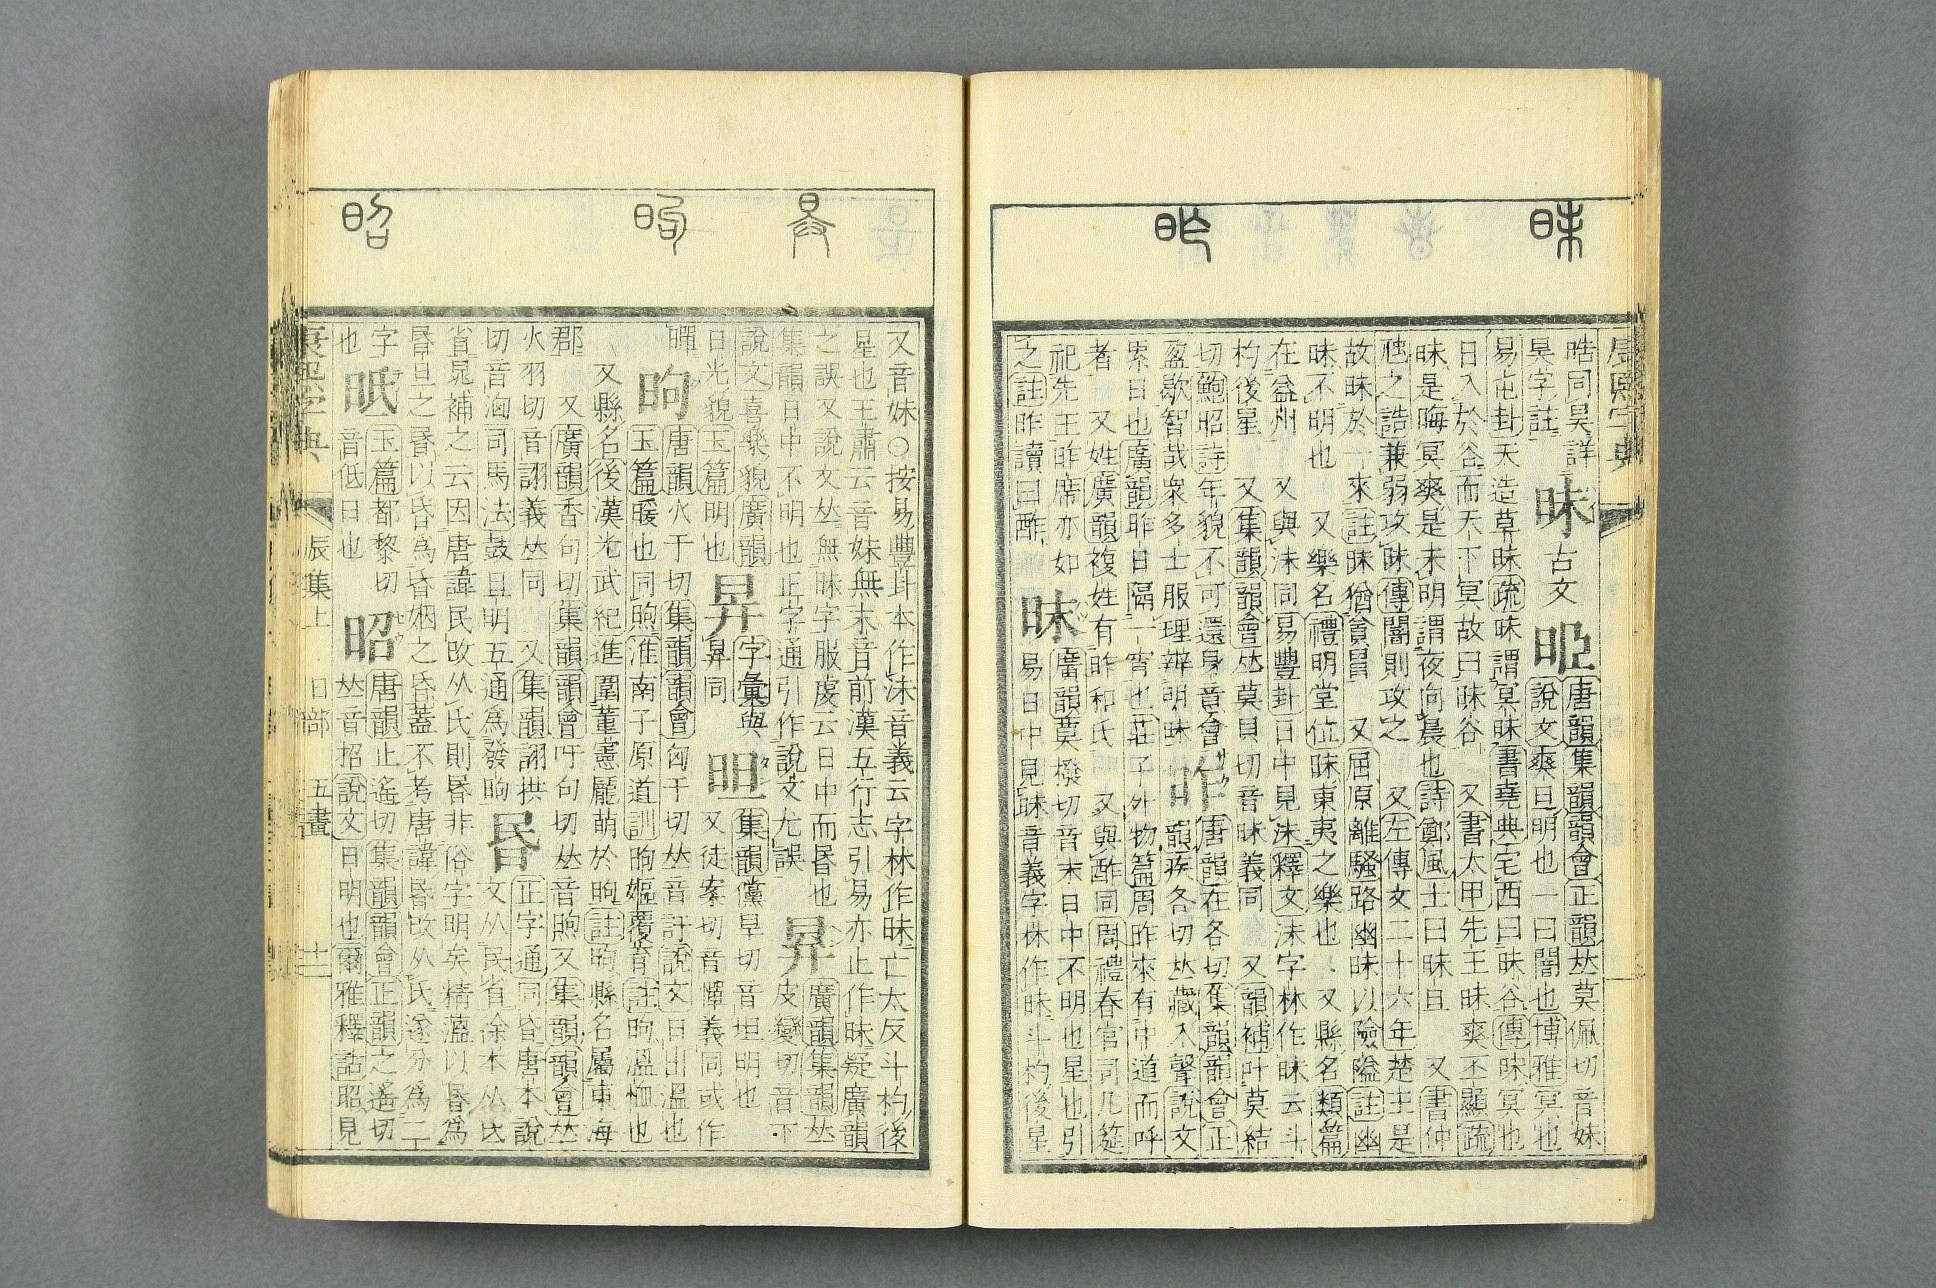 康熙字典
晧同昊詳 昧 古文 唐韻集韻韻會正韻𠀤莫佩切音妹
昊字註 說文爽旦明也一曰闇也博雅冥也
易屯卦天造草昧疏昧謂冥昧書堯典宅西曰昧谷傳昧冥也
日入於谷而天下冥故曰昧谷 又書太甲先王昧爽丕顯疏
昧是晦冥爽是未明謂夜向晨也詩鄭風士曰昧旦 又書仲
虺之誥兼弱攻昧傳闇則攻之 又左傳文二十六年楚王是
故昧於一來註昧猶貪冒 又屈原離騷路幽昧以險隘註幽
昧不明也 又樂名禮明堂位昧東夷之樂也 又縣名類篇
在益州 又與沬同易豐卦日中見沬釋文沬字林作昧云斗
杓後星 又集韻韻會𠀤莫貝切音昧義同 又韻補叶莫結
切鮑昭詩年貌不可還身意會 昨 唐韻在各切集韻韻會正
盈歇智哉衆多士服理辨明昧 韻疾各切𠀤藏入聲說文
絫日也廣韻昨日隔一宵也莊子外物篇周昨來有中道而呼
者 又姓廣韻複姓有昨和氏 又與酢同周禮春官司几筵
祀先王昨席亦如 昩 廣韻莫撥切音末日中不明也星也引
之註昨讀曰酢 易日中見昩音義字林作昩斗杓後星
又音妹○按易豐卦本作沬音義云字林作昧亡太反斗杓後
星也王肅云音妹無末音前漢五行志引易亦止作昧疑廣韻
之誤又說文𠀤無昩字服虔云日中而昬也 昪 廣韻集韻𠀤
集韻日中不明也正字通引作說文尤誤 皮變切音卞
說文喜樂貌廣韻 昇 字彙與 集韻黨旱切音亶明也
日光貌玉篇明也 昇同 又徒案切音憚義同或作
暺 昫 唐韻火于切集韻韻會匈于切𠀤音訏說文日出溫也
玉篇暖也同煦淮南子原道訓昫嫗覆育註昫溫恤也
又縣名後漢光武紀進圍董憲龎萌於昫註昫縣名屬東海
郡 又廣韻香句切集韻韻會吁句切𠀤音煦又集韻韻會𠀤
火羽切音詡義𠀤同 又集韻詡拱 昬 正字通同昏唐本說
切音洶司馬法鼓旦明五通爲發昫 文从民省徐本从氐
省晁補之云因唐諱民改从氏則昬非俗字明矣精薀以昬爲
昬旦之昬以昏爲昏姻之昏蓋不考唐諱昬改从氏遂分爲二
字 眡 玉篇都黎切 昭 唐韻止遙切集韻韻會正韻之遙切
也 音低日也 𠀤音招說文日明也爾雅釋詁昭見
康熙字典 辰集上 日部 五畫 十二